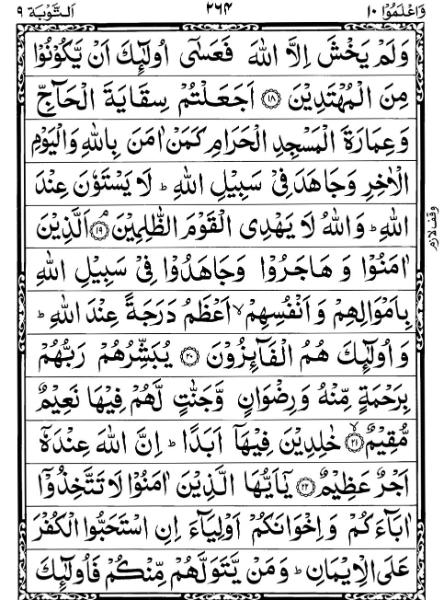 وَاعْلَمُوْۤا ١٠ ٢٦٤ اَلتَّوْبَة ٩
وَلَمْ يَخْشَ اِلَّا اللّٰهَ فَعَسٰۤى اُولٰٓئِكَ اَنْ يَّكُوْنُوْا
مِنَ الْمُهْتَدِيْنَ ﴿١٨﴾ اَجَعَلْتُمْ سِقَايَةَ الْحَآجِّ
وَعِمَارَةَ الْمَسْجِدِ الْحَرَامِ كَمَنْ اٰمَنَ بِاللّٰهِ وَالْيَوْمِ
الْاٰخِرِ وَجَاهَدَ فِيْ سَبِيْلِ اللّٰهِ ؕ لَا يَسْتَوٗنَ عِنْدَ
اللّٰهِ ؕ وَاللّٰهُ لَا يَهْدِى الْقَوْمَ الظّٰلِمِيْنَ ۘ ﴿١٩﴾ اَلَّذِيْنَ
وقف لازم
اٰمَنُوْا وَ هَاجَرُوْا وَجَاهَدُوْا فِيْ سَبِيْلِ اللّٰهِ
بِاَمْوَالِهِمْ وَ اَنْفُسِهِمْ ۙ اَعْظَمُ دَرَجَةً عِنْدَ اللّٰهِ ؕ
وَ اُولٰٓئِكَ هُمُ الْفَآئِزُوْنَ ﴿٢٠﴾ يُبَشِّرُهُمْ رَبُّهُمْ
بِرَحْمَةٍ مِّنْهُ وَ رِضْوَانٍ وَّجَنّٰتٍ لَّهُمْ فِيْهَا نَعِيْمٌ
مُّقِيْمٌ ۙ ﴿٢١﴾ خٰلِدِيْنَ فِيْهَاۤ اَبَدًا ؕ اِنَّ اللّٰهَ عِنْدَهٗۤ
اَجْرٌ عَظِيْمٌ ﴿٢٢﴾ يٰۤاَيُّهَا الَّذِيْنَ اٰمَنُوْا لَا تَتَّخِذُوْۤا
اٰبَآءَكُمْ وَ اِخْوَانَكُمْ اَوْلِيَآءَ اِنِ اسْتَحَبُّوا الْكُفْرَ
عَلَى الْاِيْمَانِ ؕ وَمَنْ يَّتَوَلَّهُمْ مِّنْكُمْ فَاُولٰٓئِكَ